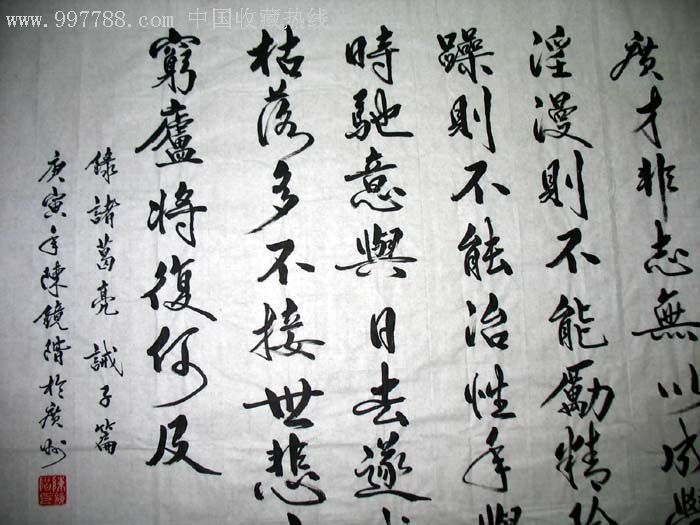 www.997788.com 中国收藏热线
廣才非志無以成學
淫漫則不能勵精險
躁則不能治性年與
時馳意與日去遂成
枯落多不接世悲守
窮廬將復何及
錄諸葛亮誡子篇
庚寅年陳鏡階於廣州